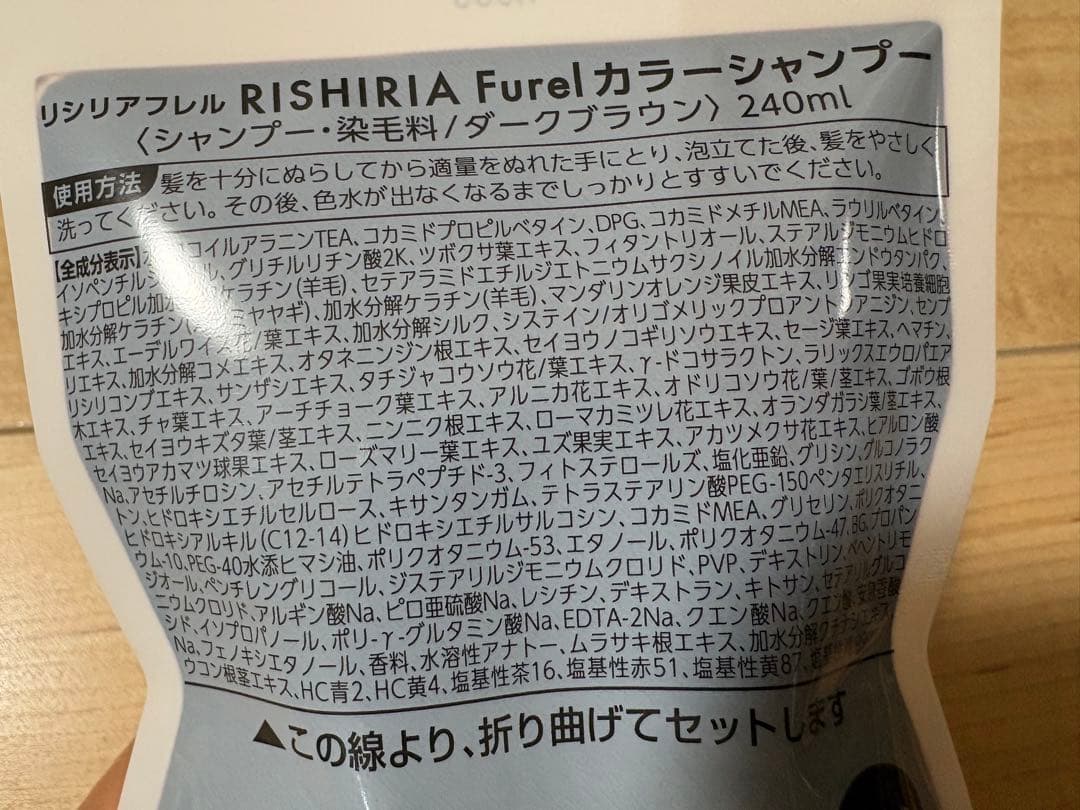 リシリアフレル RISHIRIA Furelカラーシャンプー
〈シャンプー・染毛料/ダークブラウン〉240ml
使用方法 髪を十分にぬらしてから適量をぬれた手にとり、泡立てた後、髪をやさしく
洗ってください。その後、色水が出なくなるまでしっかりとすすいでください。
【全成分表示】 コイルアラニンTEA、コカミドプロピルベタイン、DPG、コカミドメチルMEA、ラウリルベタイン、
イソペンチルジオール、グリチルリチン酸2K、ツボクサ葉エキス、フィタントリオール、ステアルジモニウムヒドロ
キシプロピル加水分解ケラチン(羊毛)、セテアラミドエチルジエトニウムサクシノイル加水分解エンドウタンパク、
加水分解ケラチン(カシミヤヤギ)、加水分解ケラチン(羊毛)、マンダリンオレンジ果皮エキス、リンゴ果実培養細胞
エキス、エーデルワイス花/葉エキス、加水分解シルク、システイン/オリゴメリックプロアントシアニジン、センブ
リエキス、加水分解コメエキス、オタネニンジン根エキス、セイヨウノコギリソウエキス、セージ葉エキス、ヘマチン、
リシリコンブエキス、サンザシエキス、タチジャコウソウ花/葉エキス、γ-ドコサラクトン、ラリックスエウロパエア
木エキス、チャ葉エキス、アーチチョーク葉エキス、アルニカ花エキス、オドリコソウ花/葉/茎エキス、ゴボウ根
エキス、セイヨウキズタ葉/茎エキス、ニンニク根エキス、ローマカミツレ花エキス、オランダガラシ葉/茎エキス、
セイヨウアカマツ球果エキス、ローズマリー葉エキス、ユズ果実エキス、アカツメクサ花エキス、ヒアルロン酸
Na、アセチルチロシン、アセチルテトラペプチド-3、フィトステロールズ、塩化亜鉛、グリシン、グルコノラク
トン、ヒドロキシエチルセルロース、キサンタンガム、テトラステアリン酸PEG-150ペンタエリスリチル、
ヒドロキシアルキル(C12-14)ヒドロキシエチルサルコシン、コカミドMEA、グリセリン、ポリクオタニ
ウム-10、PEG-40水添ヒマシ油、ポリクオタニウム-53、エタノール、ポリクオタニウム-47、BG、プロパン
ジオール、ペンチレングリコール、ジステアリルジモニウムクロリド、PVP、デキストリン、ベヘントリモ
ニウムクロリド、アルギン酸Na、ピロ亜硫酸Na、レシチン、デキストラン、キトサン、セテアリルグルコ
シド、イソプロパノール、ポリ-γ-グルタミン酸Na、EDTA-2Na、クエン酸Na、クエン酸、安息香酸
Na、フェノキシエタノール、香料、水溶性アナトー、ムラサキ根エキス、加水分解クチナシエキス、
ウコン根茎エキス、HC青2、HC黄4、塩基性茶16、塩基性赤51、塩基性黄87、
▲この線より、折り曲げてセットします